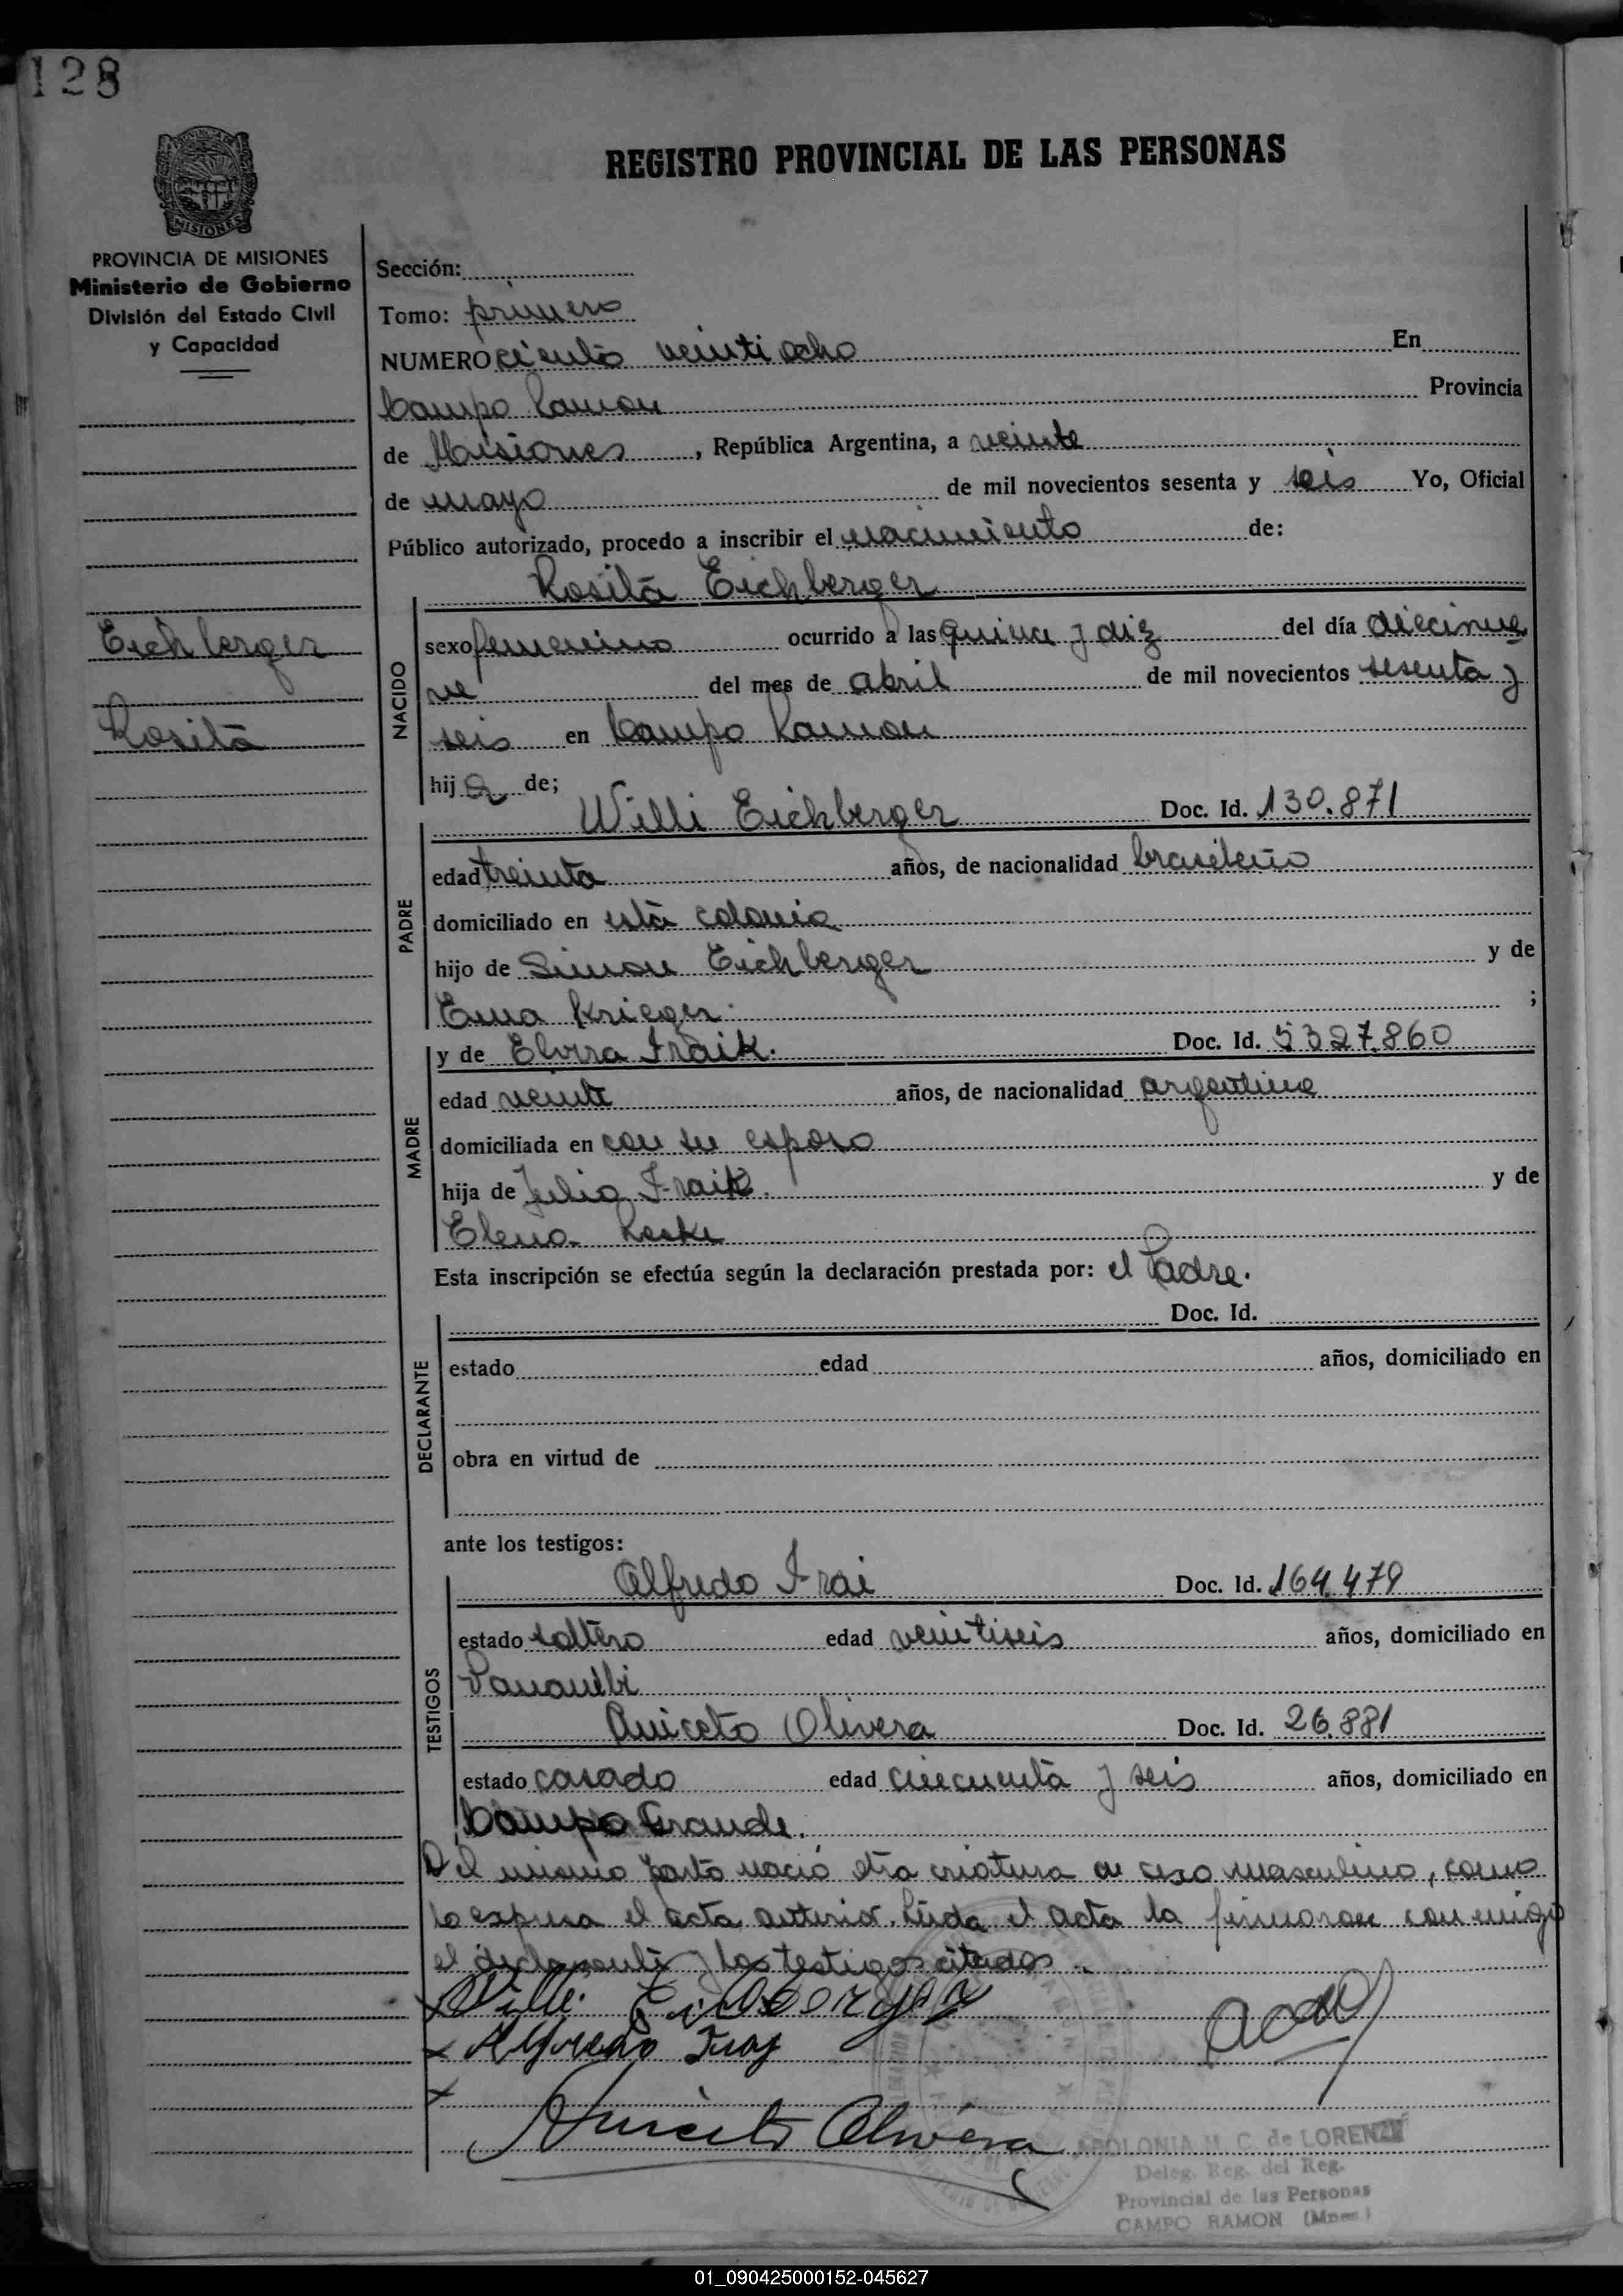 128
MISIONES
REGISTRO PROVINCIAL DE LAS PERSONAS
PROVINCIA DE MISIONES
Ministerio de Gobierno
División del Estado Civil
y Capacidad
Eichberger
Rosita
Sección:
Tomo: primero
NUMERO ciento veinti ocho En
Campo Ramon Provincia
de Misiones, República Argentina, a veinte
de mayo de mil novecientos sesenta y seis Yo, Oficial
Público autorizado, procedo a inscribir el nacimiento de:
Rosita Eichberger
NACIDO
sexo femenino ocurrido a las quince y diez del día diecinue
ve del mes de abril de mil novecientos sesenta y
seis en Campo Ramon
hija de;
PADRE
Willi Eichberger Doc. Id. 130.871
edad treinta años, de nacionalidad brasileño
domiciliado en esta colonia
hijo de Simon Eichberger y de
Ema Krieger. ;
MADRE
y de Elvira Fraik. Doc. Id. 5327.860
edad veinte años, de nacionalidad argentina
domiciliada en con su esposo
hija de Julio Fraik. y de
Elena Reske
Esta inscripción se efectúa según la declaración prestada por: el Padre.
DECLARANTE
Doc. Id.
estado edad años, domiciliado en
obra en virtud de
ante los testigos:
TESTIGOS
Alfredo Frai Doc. Id. 164.479
estado soltero edad veintiseis años, domiciliado en
Panambi
Aniceto Olivera Doc. Id. 26.881
estado casado edad cincuenta y seis años, domiciliado en
Campo Grande.
Del mismo parto nació otra criatura de sexo masculino, como
lo expresa el acta anterior. Leída el acta la firmaron conmigo
el declarante y los testigos citados.
x Willi Eichberger
x Alfredo Fray
x
Aniceto Olivera
APOLONIA M. C. de LORENZO
Deleg. Reg. del Reg.
Provincial de las Personas
CAMPO RAMON (Mnes.)
01_090425000152-045627